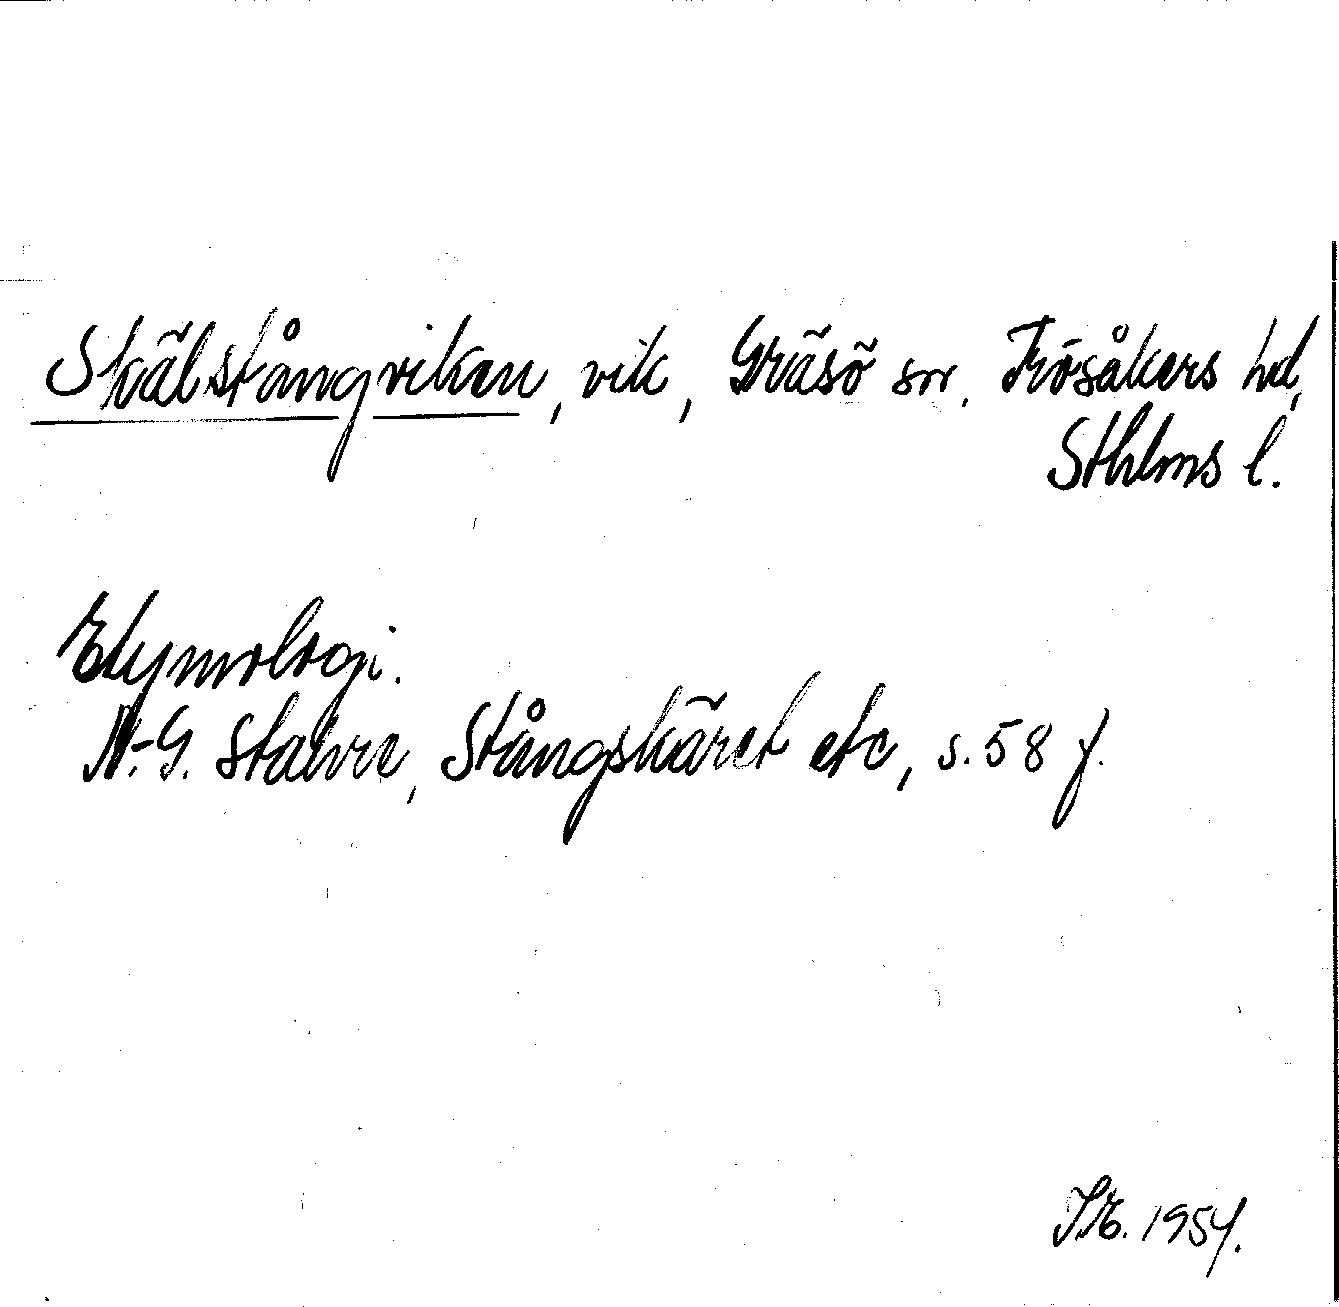 Skälstångviken, vik, Gräsö sn. Frösåkers hd,
Sthlms l.
Etymologi.
N.-G. Stahre, Stångskäret etc, s. 58 f.
1954.